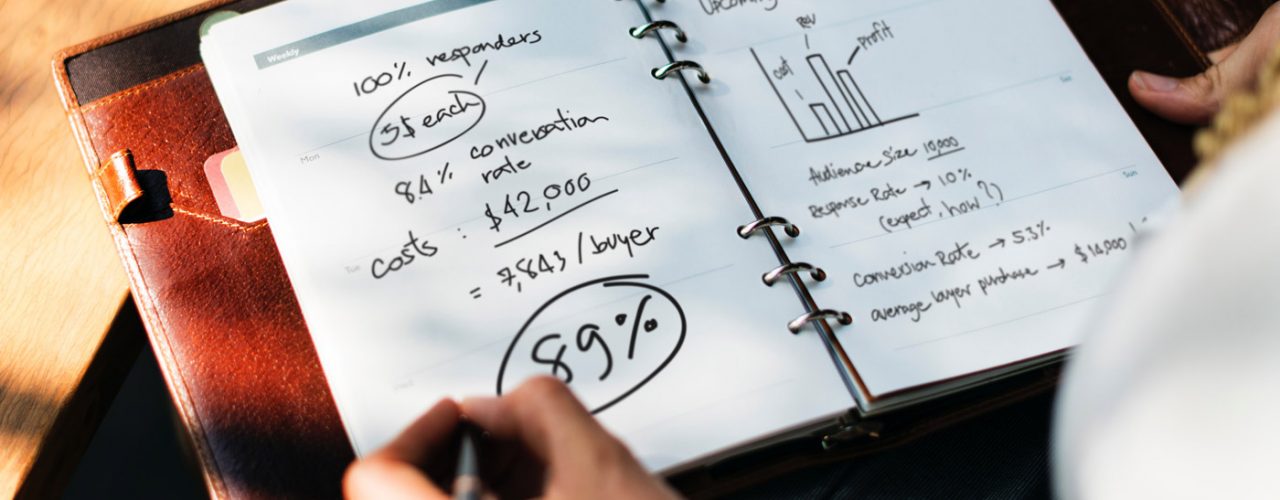 Weekly
100% responders
5$ each
Mon
8.4% conversation
rate
costs : $42,000
Tue
= 7,843/buyer
89%
Wed
Upcoming
Rev
cost
profit
Sat
Audience Size 10,000
Response Rate → 10%
(expect, how?)
Sun
Conversion Rate → 5.3%
average buyer purchase → $14,000